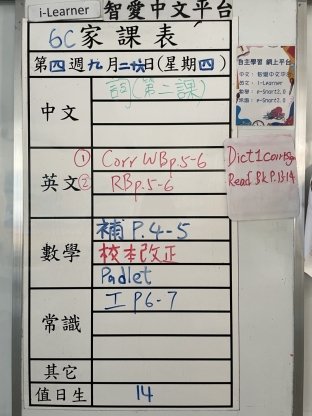 i-Learner 智愛中文平台
6C家課表
第四週九月二十六日(星期四)
中文 詞(第二課)
英文 ① Corr WB p.5-6
② RB p.5-6
數學 補 P.4-5
校本改正
Padlet
常識 工 P6-7
其它
值日生 14
自主學習 網上平台
中文: 智愛中文平台
英文: i-Learner
Dict 1 corr
Read Bk P.13-14